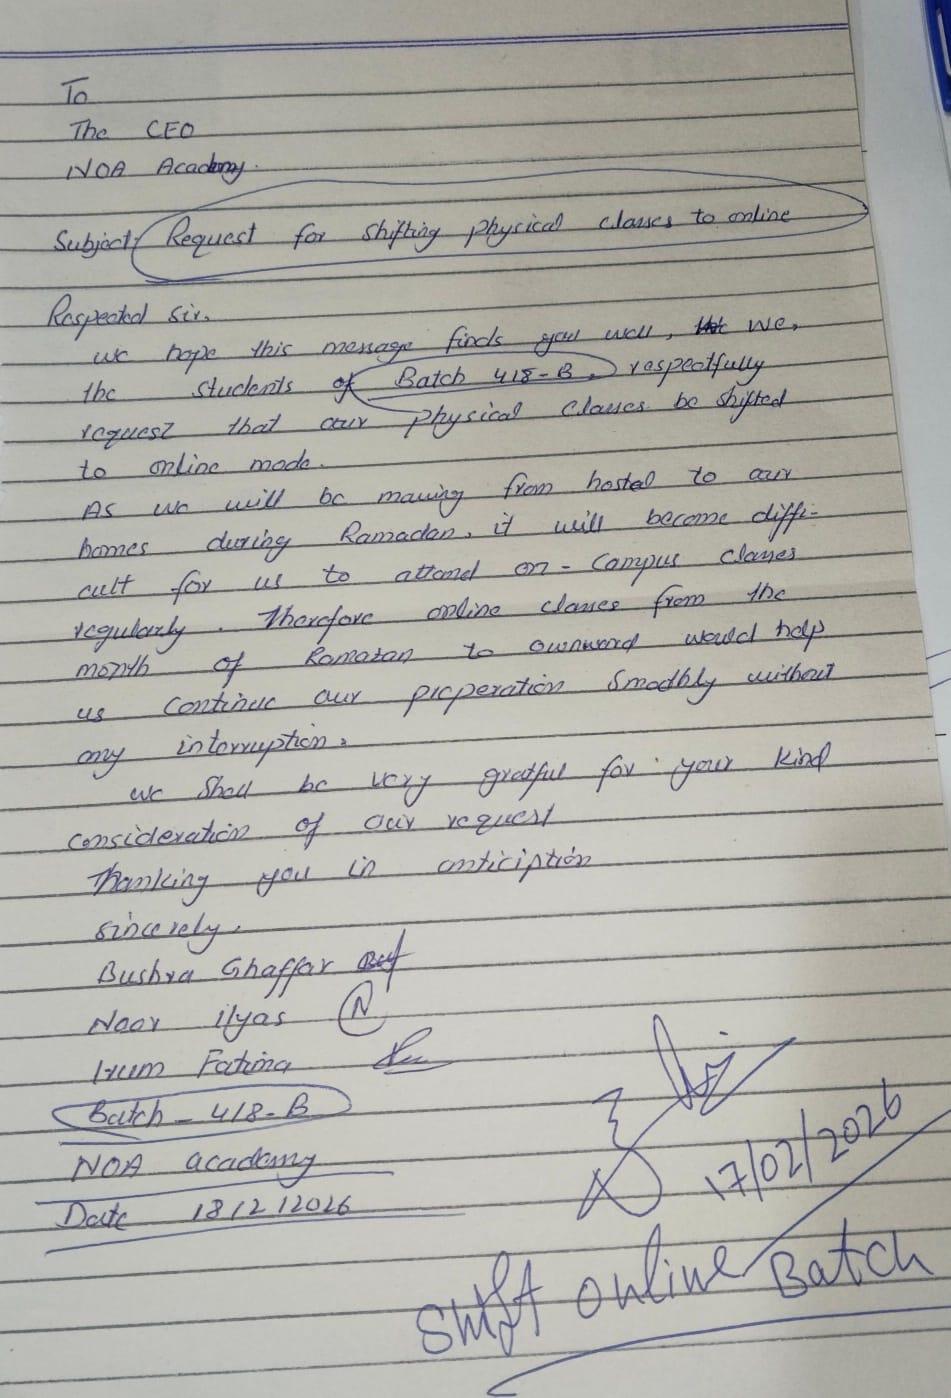 To
The CEO
NOA Academy.
Subject: Request for shifting physical classes to online
Respected Sir,
we hope this message finds you well, we,
the students of Batch 418-B, respectfully
request that our physical classes be shifted
to online mode.
As we will be moving from hostel to our
homes during Ramadan, it will become diffi-
cult for us to attend on-campus classes
regularly. Therefore online classes from the
month of Ramazan to ownword would help
us continue our preperation smoothly without
any interruption.
we shall be very gratful for your kind
consideration of our request
Thanking you in anticiption
sincerely,
Bushra Ghaffar
Noor ilyas N
Irum Fatima
Batch - 418-B
NOA academy
Date 18/2/2026
17/02/2026
Shift online Batch